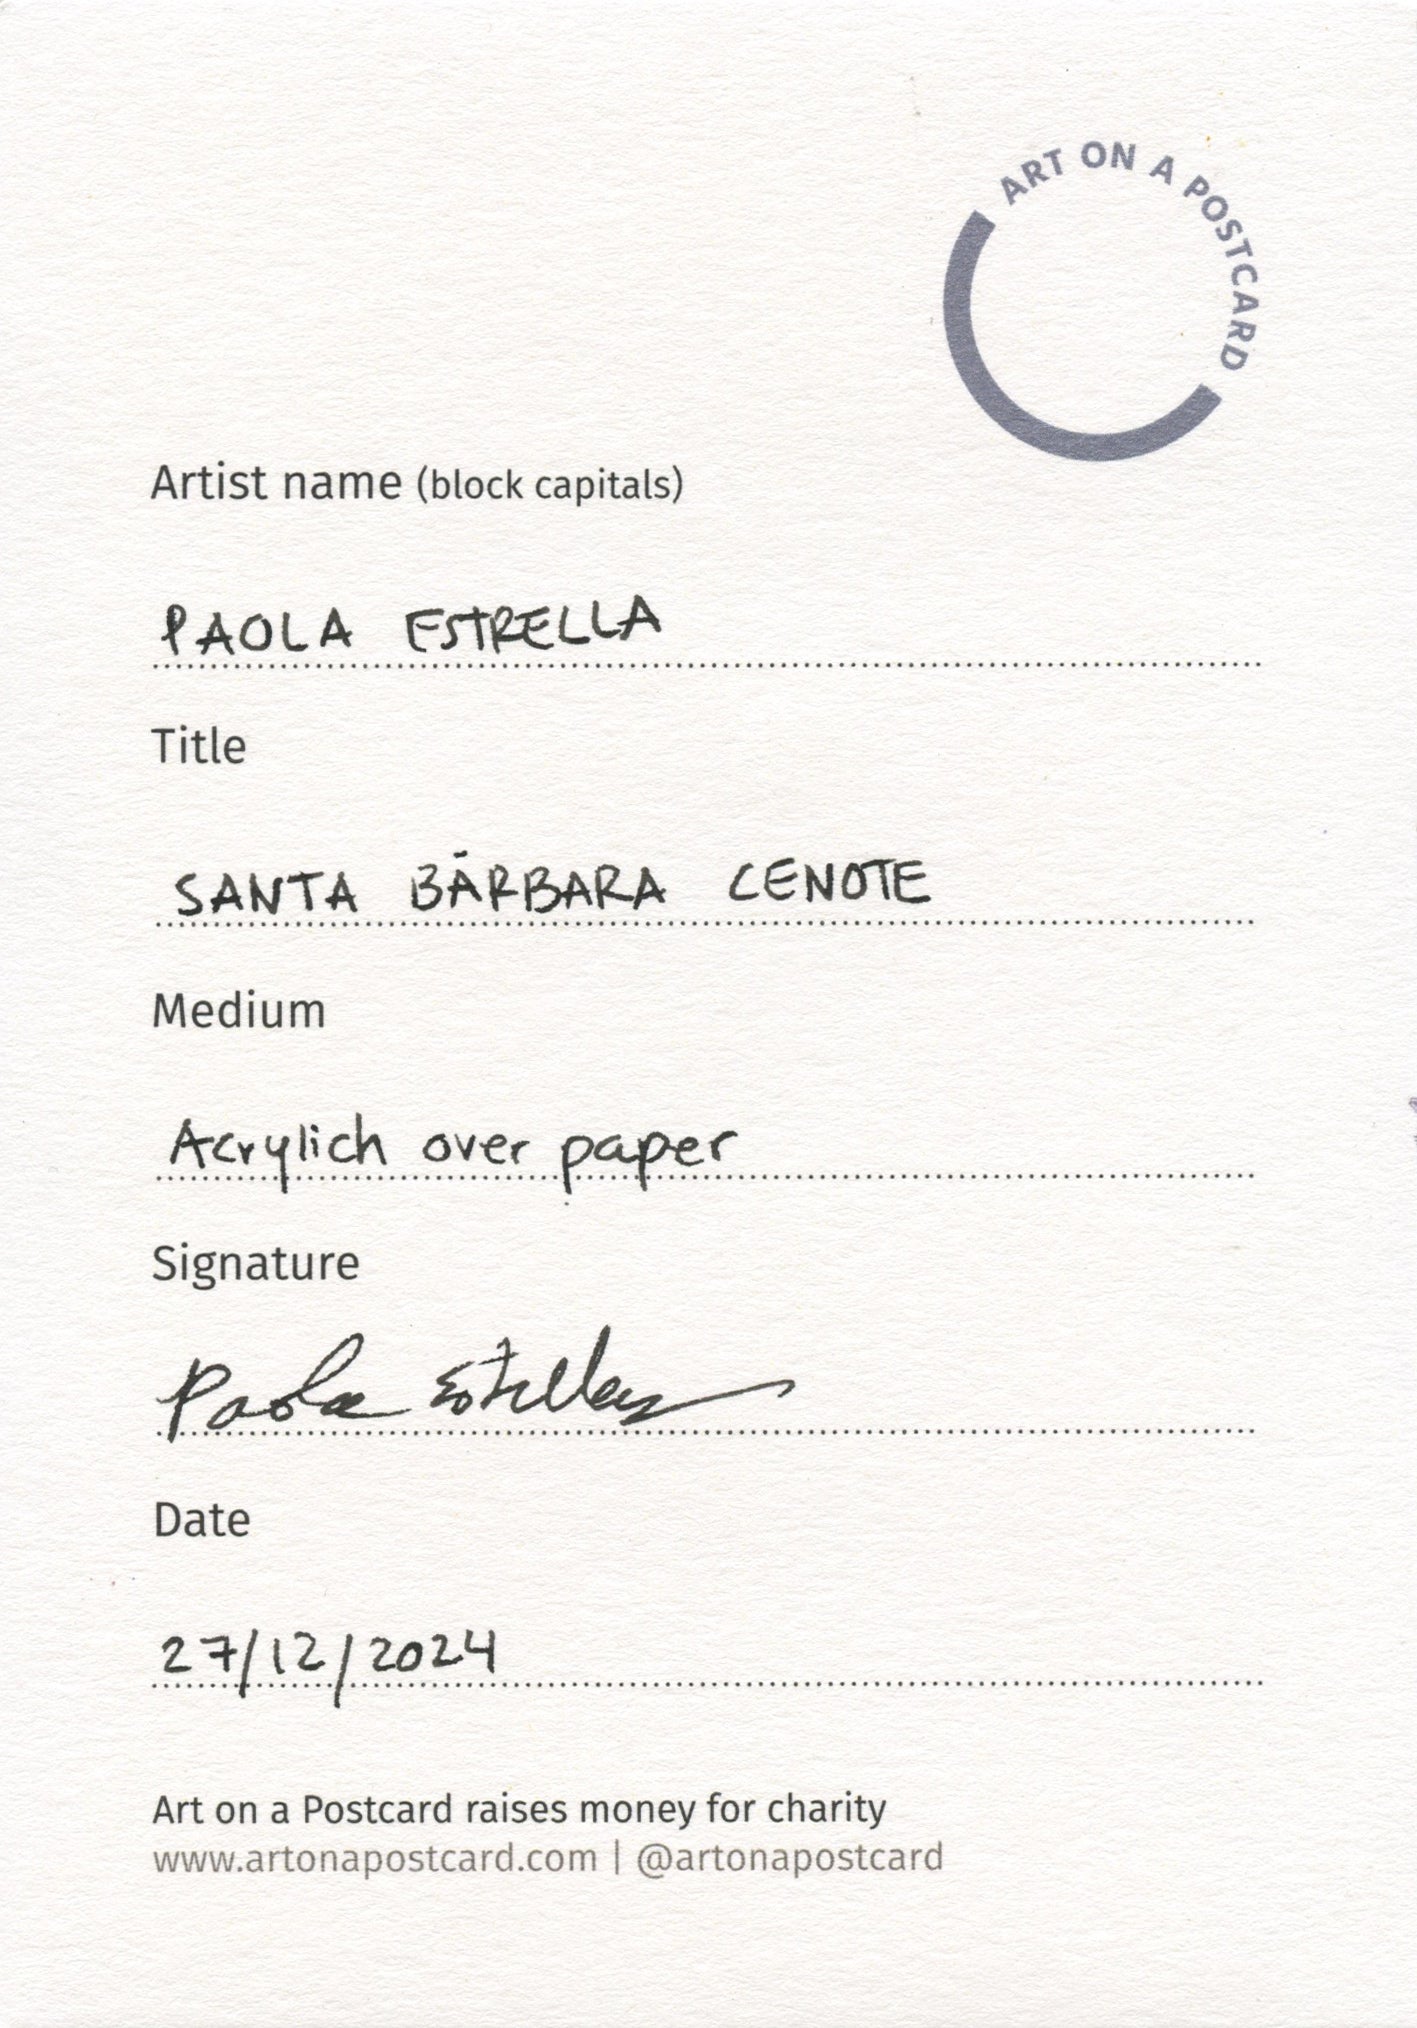 ART ON A POSTCARD
Artist name (block capitals)
PAOLA ESTRELLA
Title
SANTA BÁRBARA CENOTE
Medium
Acrylich over paper
Signature
Paola Estrella
Date
27/12/2024
Art on a Postcard raises money for charity
www.artonapostcard.com | @artonapostcard